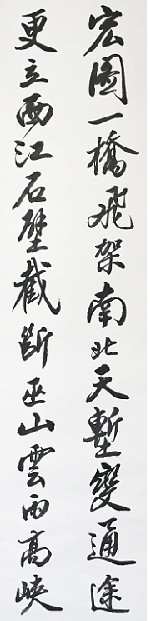 宏圖一橋飛架南北天塹變通途
更立西江石壁截斷巫山雲雨高峽